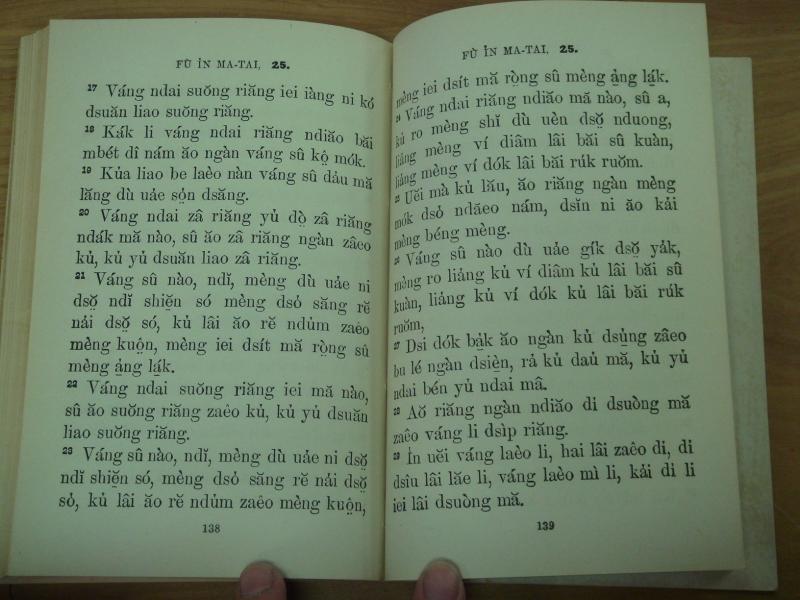 FÙ ÌN MA-TAI, 25.
17 Váng ndai suŏng riăng iei iàng ni kó
dsuăn liao suŏng riăng.
18 Kák li váng ndai riăng ndiăo băi
mbét dî nám ăo ngàn váng sû kộ mók.
19 Kủa liao be laèo nàn váng sû dảu mă
lăng dù uảe sọ́n dsăng.
20 Váng ndai zâ riăng yủ dọ̀ zâ riăng
ndák mă nào, sû ăo zâ riăng ngàn zâeo
kủ, kủ yủ dsuăn liao zâ riăng.
21 Váng sû nào, ndĭ, mèng dù uảe ni
dsọ̆ ndĭ shiẹ̆n só mèng dsỏ săng rĕ
nải dsọ̆ só, kủ lâi ăo rĕ ndủm zaêo
mèng kuộn, mèng iei dsít mă rọ̀ng sû
mèng ạ̉ng lạ́k.
22 Váng ndai suŏng riăng iei mă nào,
sû ăo suŏng riăng zaêo kủ, kủ yủ dsuăn
liao suŏng riăng.
23 Váng sû nào, ndĭ, mèng dù uảe ni dsọ̆
ndĭ shiẹ̆n só, mèng dsỏ săng rĕ nải dsọ̆
sỏ, kủ lâi ăo rĕ ndủm zaêo mèng kuộn,
138
FÙ ỈN MA-TAI, 25.
mèng iei dsít mă rọ̀ng sû mèng ạ̉ng lạ́k.
24 Váng ndai riăng ndiăo mă nào, sû a,
kủ ro mèng shĭ dù uèn dsọ̆ nduong,
liảng mèng ví diâm lâi băi sû kuàn,
liảng mèng ví dók lâi băi rúk ruŏm.
25 Uĕi mà kủ lău, ăo riăng ngàn mèng
mók dsỏ ndăeo nám, dsĭn ni ăo kải
mèng béng mèng.
26 Váng sû nào dù uảe gík dsọ̆ yảk,
mèng ro liảng kủ ví diâm kủ lâi băi sû
kuàn, liảng kủ ví dók kủ lâi băi rúk
ruŏm,
27 Dsi dók bạ̉k ăo ngàn kủ dsụ̉ng zâeo
bu lé ngàn dsiẹ̀n, rả kủ daủ mă, kủ yủ
ndai bén yủ ndai mâ.
28 Aŏ riăng ngàn ndiăo di dsuòng mă
zaêo váng li dsìp riăng.
29 Ín uĕi váng laèo li, hai lâi zaêo di, di
dsîu lâi lăe li, váng laèo mì li, kải di li
iei lâi dsuòng mă.
139